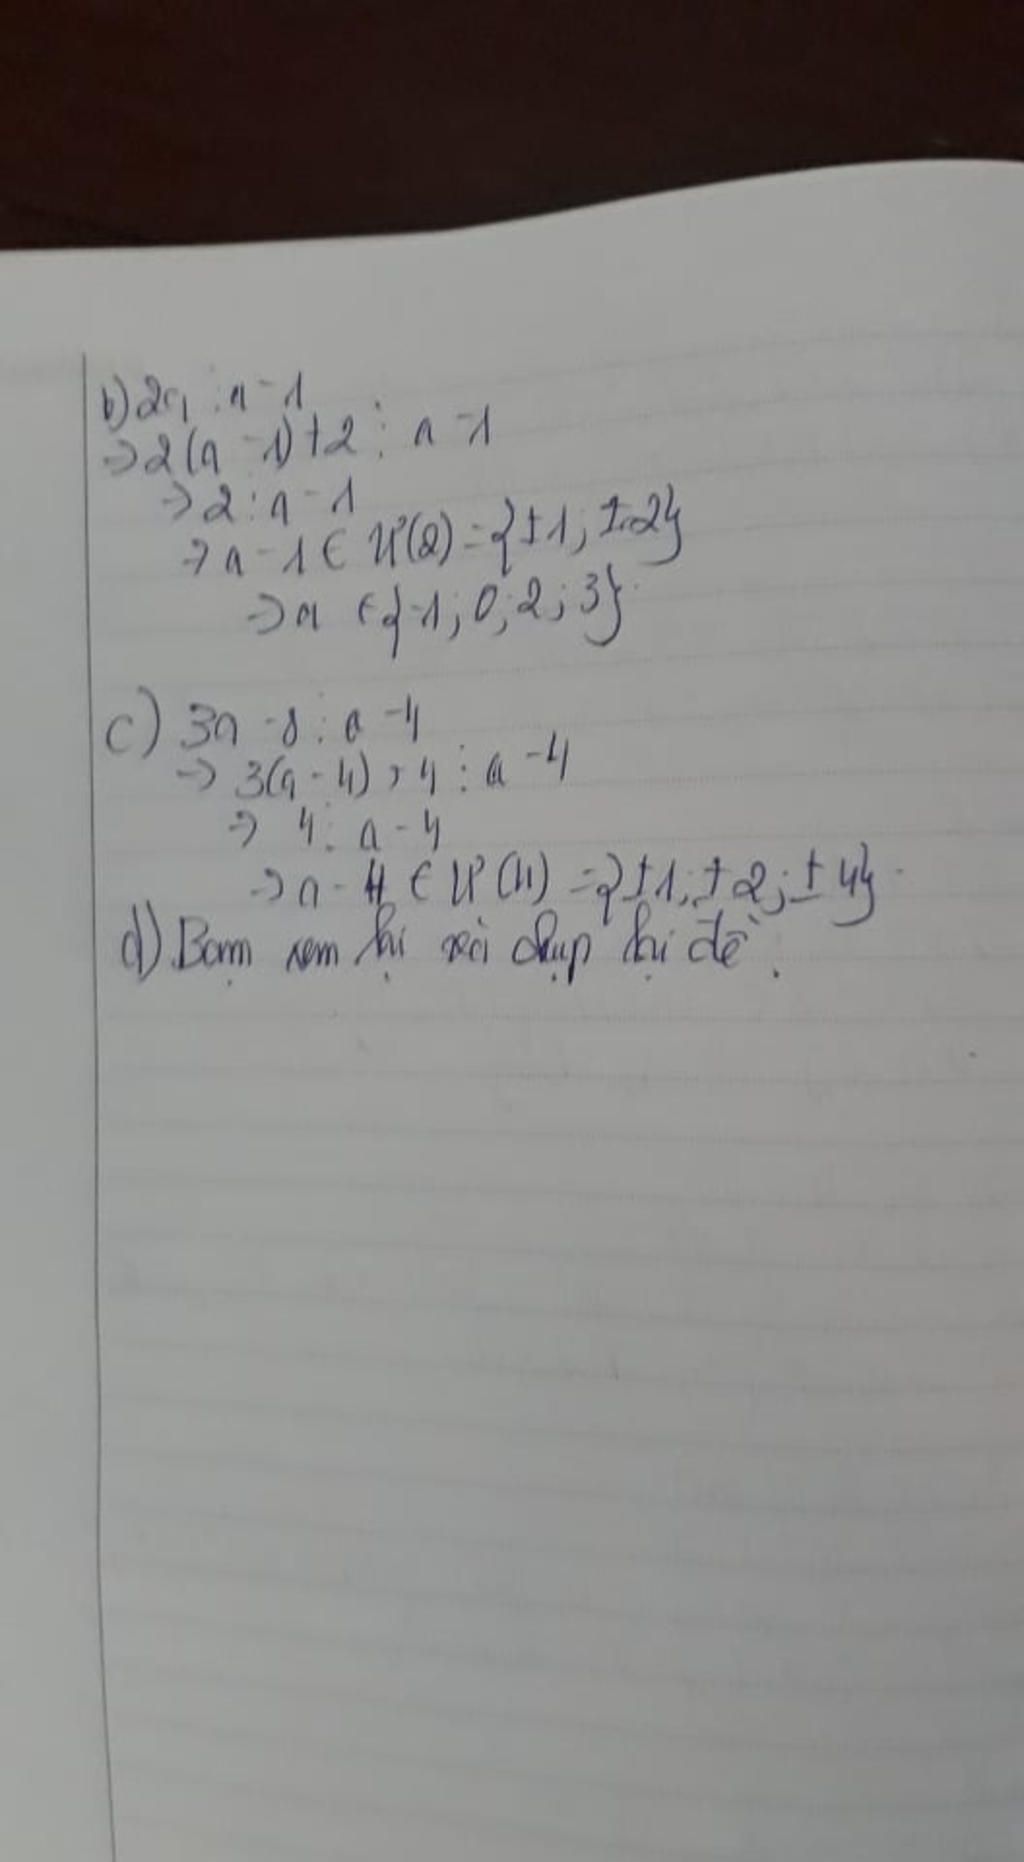 b) 2a ⋮ a - 1
⇒ 2(a - 1) + 2 ⋮ a - 1
⇒ 2 ⋮ a - 1
⇒ a - 1 ∈ Ư(2) = {±1; ±2}
⇒ a ∈ {-1; 0; 2; 3}
c) 3a - 8 ⋮ a - 4
⇒ 3(a - 4) + 4 ⋮ a - 4
⇒ 4 ⋮ a - 4
⇒ a - 4 ∈ Ư(4) = {±1; ±2; ±4}
d) Bạn xem lại rồi chụp lại đề.